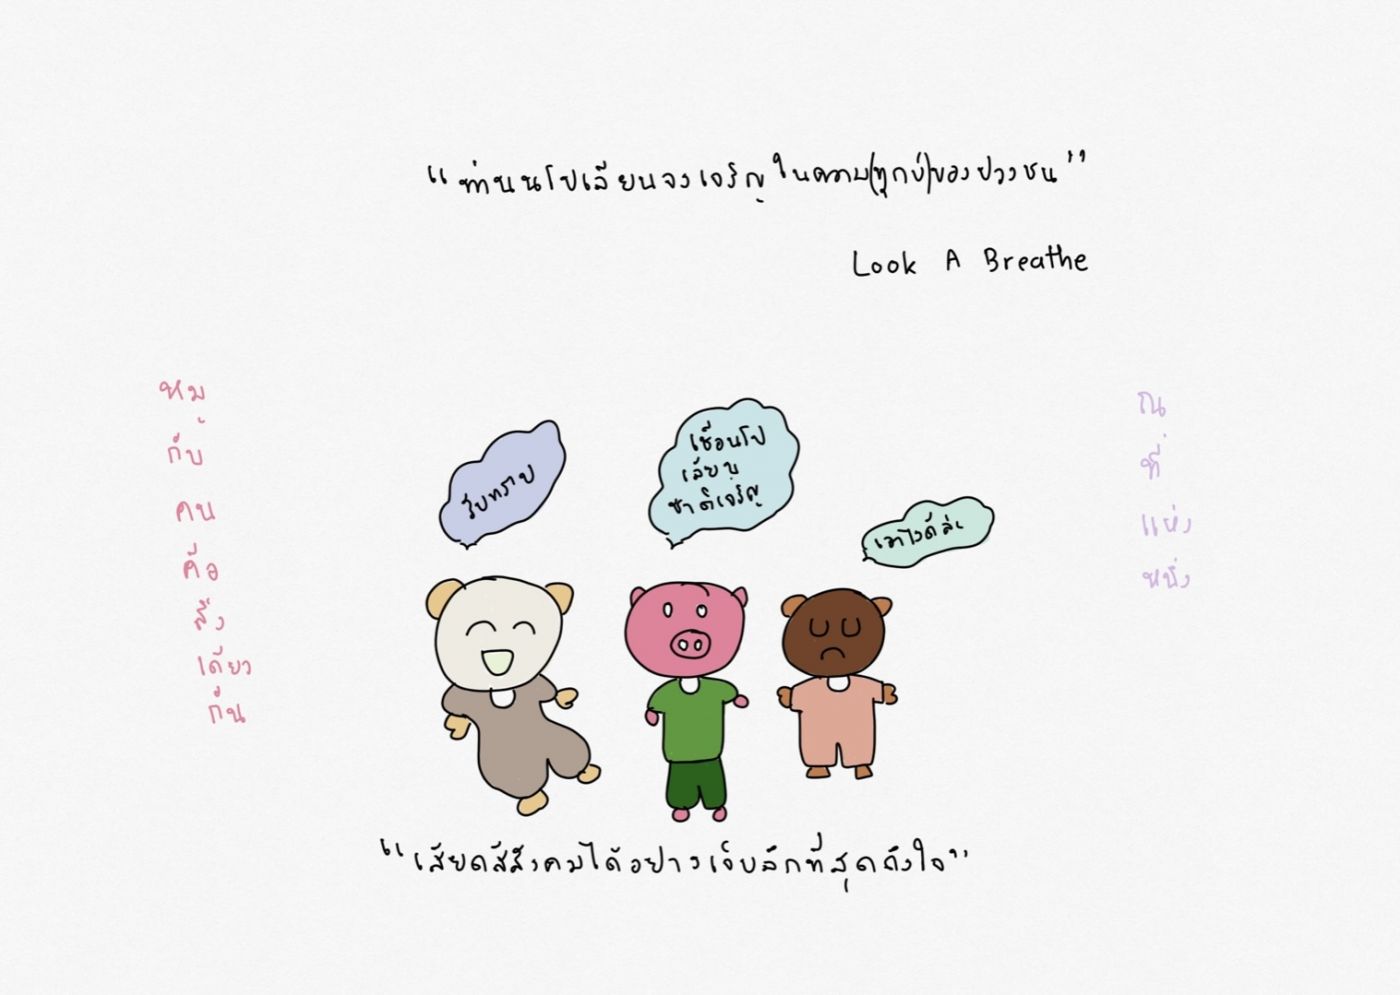 “ท่านนโปเลียนจงเจริญในความ(ทุกข์)ของปวงชน”
Look A Breathe
หมู
กับ
คน
คือ
สิ่ง
เดียว
กัน
รับทราบ
เชื่อนโป
เลียน
ชาติเจริญ
เอาไงดีล่ะ
ณ
ที่
แห่ง
หนึ่ง
“เสียดสีสังคมได้อย่างเจ็บลึกที่สุดถึงใจ”